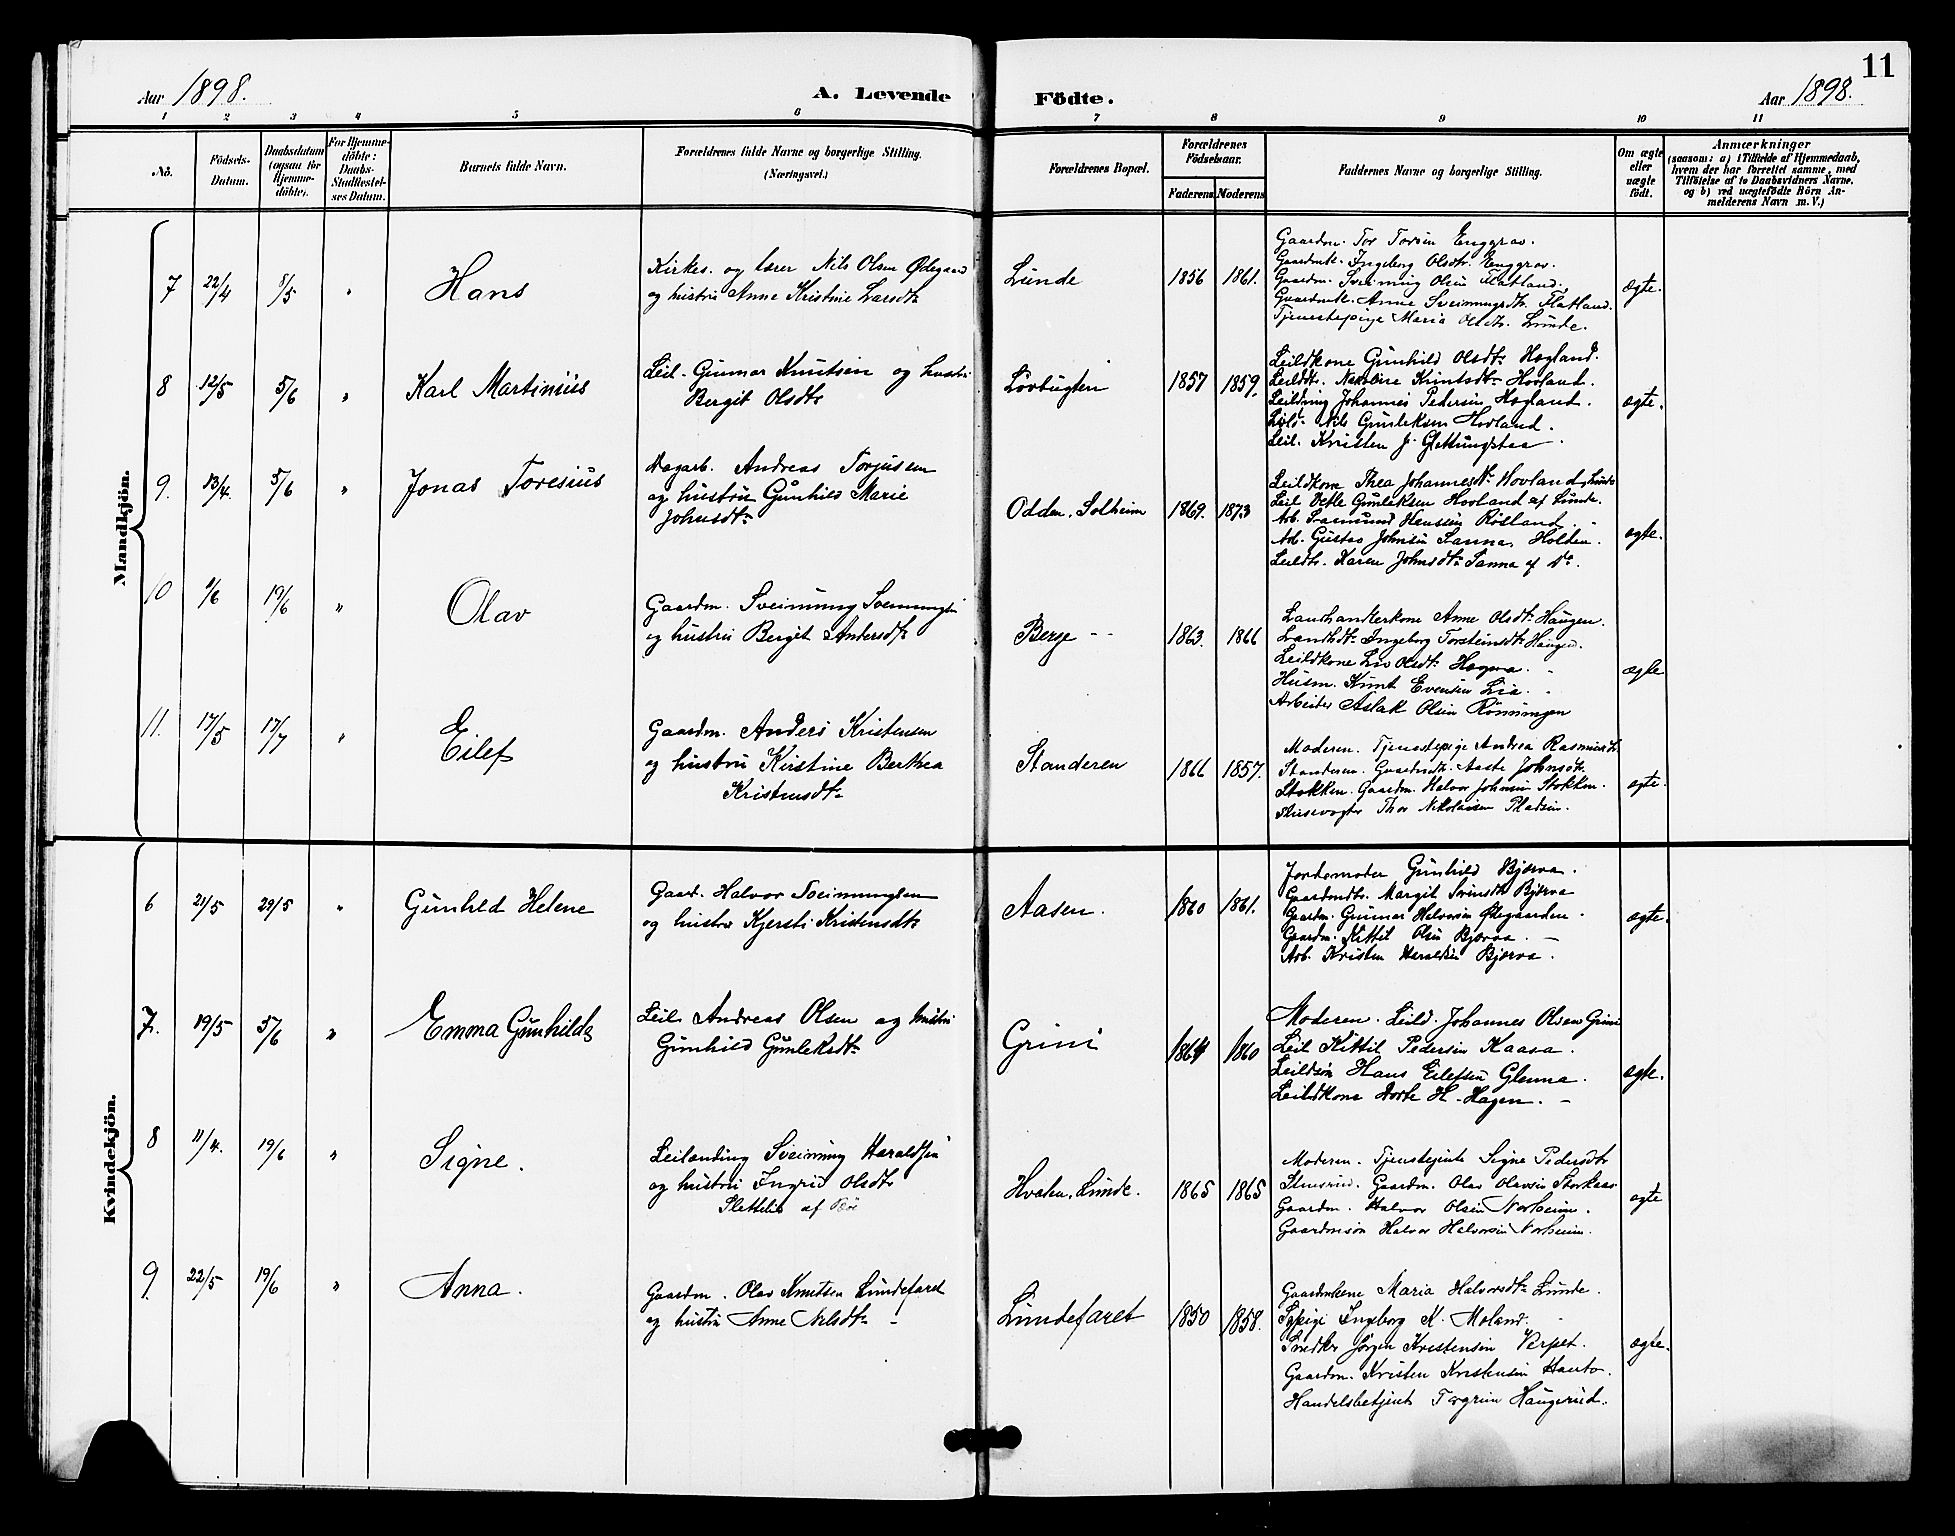 11
Aar 1898.
A. Levende
Födte.
Aar 1898.
1 2 3 4 5 6 7 8 9 10 11
No.
Födsels-
Datum.
Daabsdatum
(ogsaa for
Hjemme-
döbte).
For Hjemme-
döbte:
Daabs-
Stadfæstel-
ses Datum.
Barnets fulde Navn.
Forældrenes fulde Navne og borgerlige Stilling.
(Næringsvei.)
Forældrenes Bopæl.
Forældrenes
Födselsaar.
Faderens Moderens
Faddernes Navne og borgerlige Stilling.
Om ægte
eller
uægte
födt.
Anmærkninger
(saasom: a) i Tilfælde af Hjemmedaab,
hvem der har forrettet samme, med
Tilföielse af to Daabsvidners Navne,
og b) ved uægtefödte Börn An-
melderens Navn m. V.)
Mandkjön.
7 22/4 8/5 " Hans
Kirkes. og lærer Nils Olsen Ødegaard
og hustru Anne Kristine Larsdtr
Lunde 1856 1861.
Gaardm. Tor Torsen Enggrav.
Gaardmk. Ingeborg Olsdtr. Enggrav.
Gaardm. Sveinung Olsen Flatland.
Gaardmk. Anne Sveinungsdtr. Flatland.
Tjenestepige Maria Olsdtr. Lunde.
ægte.
8 12/5 5/6 " Karl Martinius
Leil. Gunnar Knutsen og hustru
Bergit Olsdtr
Lövbugten 1857 1859.
Leildkone Gunhild Olsdtr Hogland.
Leildtr. Nekoline Knutsdtr Hovland.
Leilding Johannes Pedersen Hogland.
Leild. Nils Gunleksen Hovland.
Leil. Kristen J.
ægte.
9. 13/4. 5/6 " Jonas Toresius
Dagarb. Andreas Torjusen
og hustru Gunhild Marie
Johnsdtr
Odden, Solheim 1869. 1873
Leildkone Thea Johannesdtr Hovland, Lunde
Leil Vetle Gunleksen Hovland af Lunde.
Arb. Hansen Røsland.
Arb. Gustav Johnsen Sanna, Holden.
Leildtr. Karen Johnsdtr Sanna af Do.
ægte.
10 1/6 19/6 " Olav
Gaardm. Sveinung Sveinungsen
og hustru Bergit Andersdtr
Berge 1863. 1866
Landhandlerkone Anne Olsdtr Haugen.
Landhdtr. Ingeborg Torsteinsdtr Haugen.
Leildkone Liv Olsdtr Hagna.
Husm. Knut Evensen Lia.
Arbeider Aslak Olsen Rönningen
ægte
11. 17/5 17/7 " Eilef
Gaardm. Anders Kristensen
og hustru Kirstine Berthea
Kristensdtr
Standeren 1866 1857.
Moderen. Tjenestepige Andrea Rasmusdtr.
Standeren. Gaardmdtr. Aaste Johnsdtr.
Stokken. Gaardm. Halvor Johnsen Stokken.
Slusevogter Thor Nikolaisen Pladsen.
ægte.
Kvindekjön.
6 21/5 29/5 " Gunhild Helene
Gaard. Halvor Sveinungsen
og hustru Kjersti Kristensdtr
Aasen. 1860 1861.
Jordemoder Gunhild Bjerva.
Gaardmdtr. Margit Svensdtr Bjerva
Gaardm. Gunnar Halvorsen Ødegaarden.
Gaardm. Kittil Olsen Bjerva.
Arb. Kristen Haraldsen Bjerva.
ægte.
7. 19/5 5/6 " Emma Gunhilda
Leil Andreas Olsen og hustru
Gunhild Gunleksdtr
Grini 1864 1860
Moderen. Leild. Johannes Olsen Grini
Leil Kittil Pedersen Kaasa.
Leildsön Hans Eilefsen Glenna.
Leildkone Dorte H. Hagen.
ægte.
8 11/4. 19/6 " Signe.
Leilænding Sveinung Haraldsen
og hustru Ingrid Olsdtr
Slettelid af Bø
Hvalen, Lunde. 1865 1865
Moderen. Tjenestejente Signe Pedersdtr
Gaardm. Olav Olavsen Storkaas
Gaardm. Halvor Olsen Norheim.
Gaardmsön Halvor Halvorsen Norheim.
ægte
9. 22/5 19/6 " Anna.
Gaardm. Olav Knutsen Lundefaret
og hustru Anne Nilsdtr
Lundefaret 1850 1858.
Gaardmkone Maria Halvorsdtr Lunde.
Ingeborg K. Moland.
Snedker Jørgen Kristensen Verpet.
Gaardm. Kristen Kristensen Hauto.
Handelsbetjent Torgrim Haugerud.
ægte.